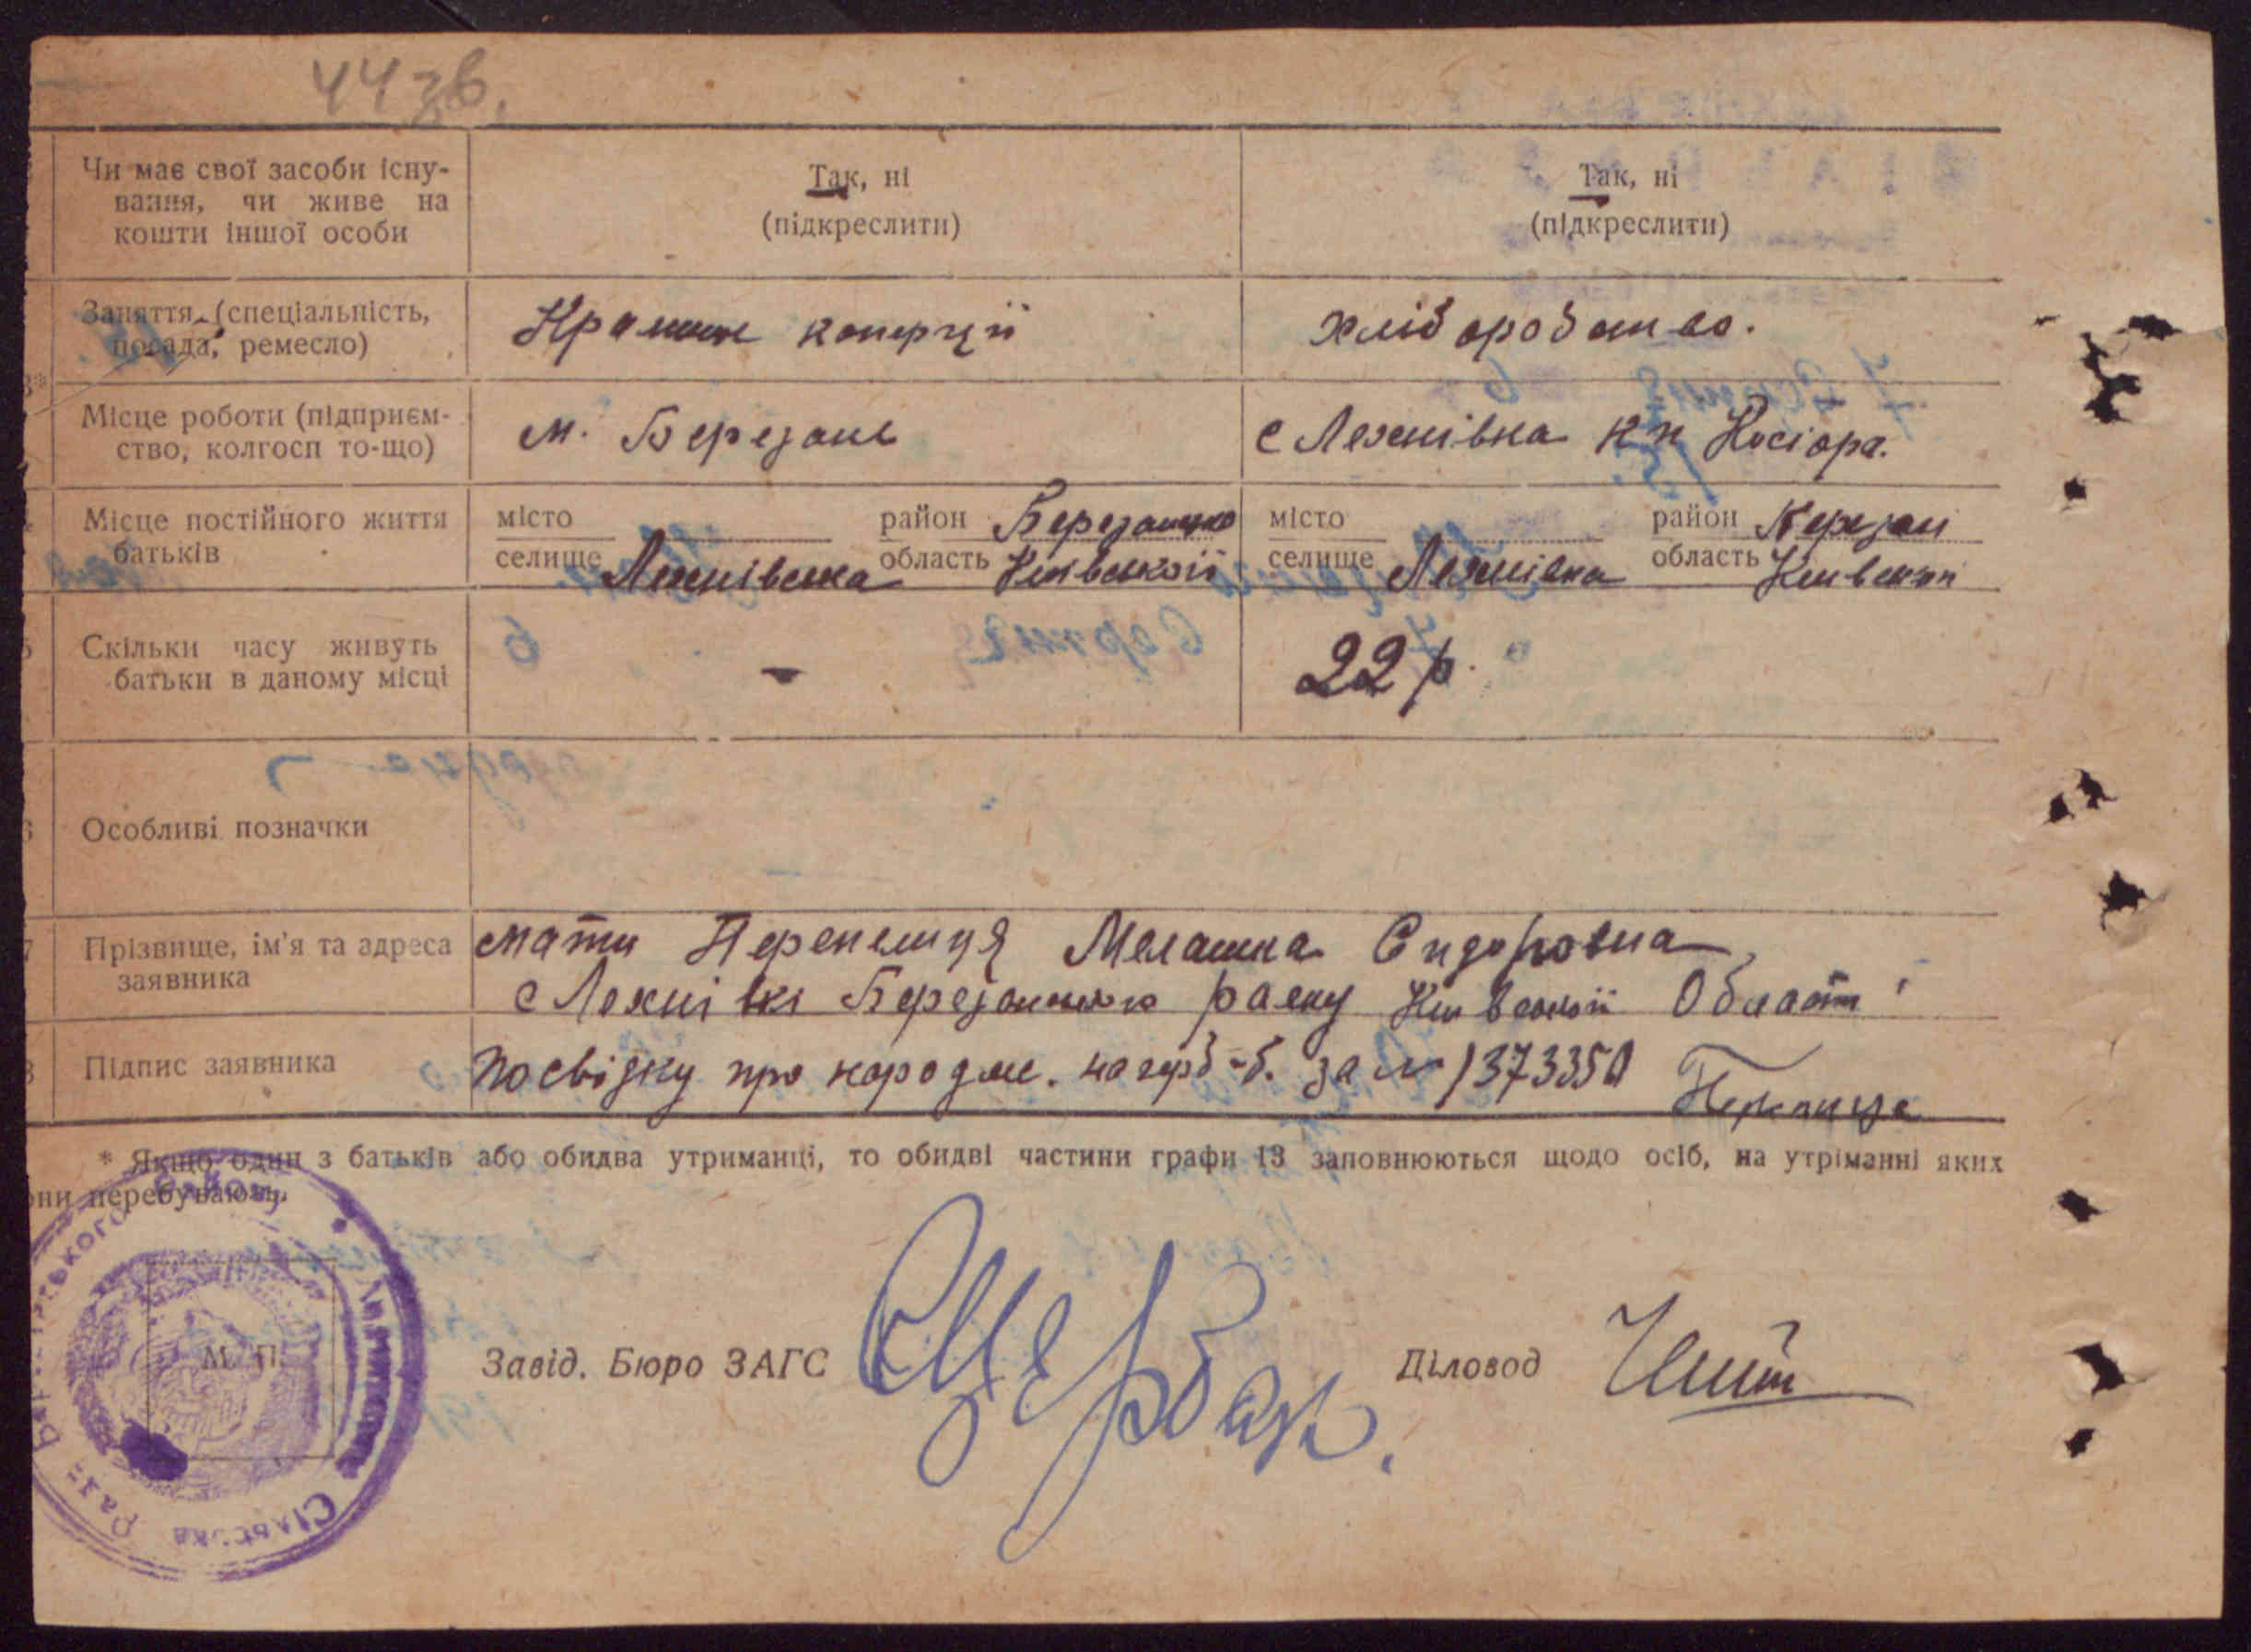 44зв.
Чи має свої засоби існу-
вання, чи живе на
кошти іншої особи
Так, ні
(підкреслити)
Так, ні
(підкреслити)
Заняття (спеціальність,
посада, ремесло)
коперції
хліборобство.
Місце роботи (підприєм-
ство, колгосп то-що)
м. Березань
с Лехнівка кп Косіора.
Місце постійного життя
батьків
місто
район
селище Лехнівка область Київської
місто
район Березан
селище Лехнівка область Київської
Скільки часу живуть
батьки в даному місці
-
22 р.
Особливі позначки
Прізвище, ім'я та адреса
заявника
мати Перепелиця Мелашка Сидоровна
с Лехнівкі Березанського раену Київської Област
Підпис заявника
посвідку про народже. за № 1373350
* Якщо один з батьків або обидва утриманці, то обидві частини графи 13 заповнюються щодо осіб, на утріманні яких
они перебувають.
М. П.
Завід. Бюро ЗАГС
Щербак.
Діловод
Сільська Рада